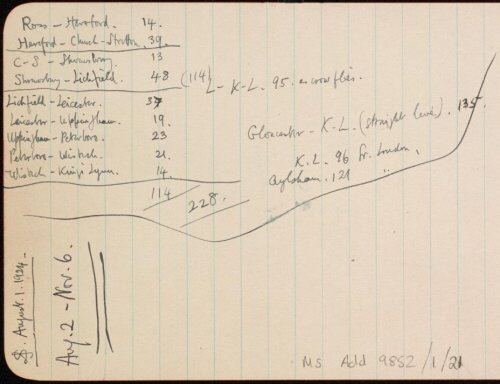 Ross - Hereford. 14.
Hereford - Church-Stretton. 39.
C-S - Shrewsbury. 13
Shrewsbury - Lichfield. 48 (114)
L - K-L. 95. as crow flies.
Lichfield - Leicester. 37
Leicester - Uppingham. 19.
Uppingham - Peterboro. 23
Peterboro - Wisbech. 21.
Wisbech - King's Lynn. 14.
114
228.
Gloucester - K.L. (straight line). 135.
K.L. 96 fr. London.
Aylsham. 121
August. 1. 1924.
Aug. 2 - Nov. 6.
Ms Add 9852/1/21